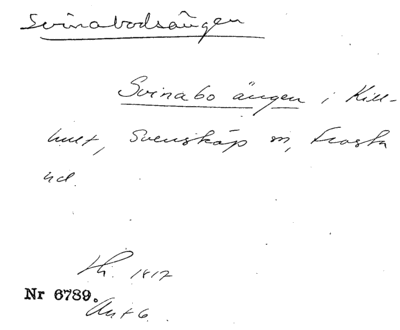 Svinabodsängen
Svinabo ängen i Kill-
hult, Svensköp sn, Frosta
hd.
Lh. 1817
Nr 6789.
Akt 6.